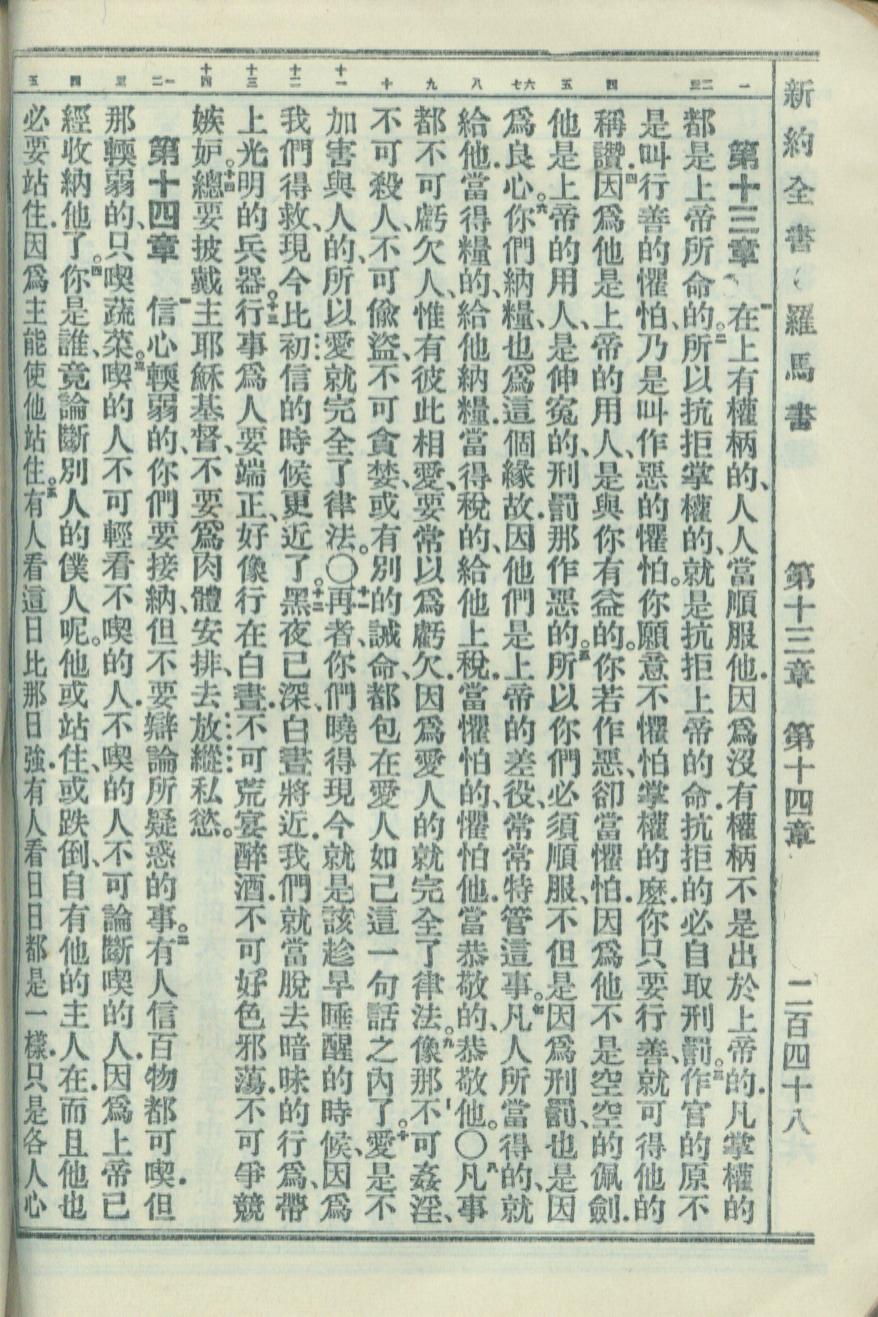 新約全書 羅馬書 第十三章 第十四章 二百四十八
一 二 三 四 五 六 七 八 九 十 十一 十二 十三 十四 一 二 三 四 五
第十三章 一在上有權柄的、人人當順服他．因爲沒有權柄不是出於上帝的．凡掌權的
都是上帝所命的。二所以抗拒掌權的、就是抗拒上帝的命．抗拒的必自取刑罰。三作官的原不
是叫行善的懼怕、乃是叫作惡的懼怕．你願意不懼怕掌權的麽．你只要行善、就可得他的
稱讚．四因爲他是上帝的用人、是與你有益的。你若作惡、卻當懼怕．因爲他不是空空的佩劍．
他是上帝的用人、是伸冤的、刑罰那作惡的。五所以你們必須順服、不但是因爲刑罰、也是因
爲良心。六你們納糧、也爲這個緣故．因他們是上帝的差役、常常特管這事。七凡人所當得的、就
給他．當得糧的、給他納糧．當得稅的、給他上稅．當懼怕的、懼怕他．當恭敬的、恭敬他。〇八凡事
都不可虧欠人、惟有彼此相愛、要常以爲虧欠．因爲愛人的就完全了律法。九像那不可姦淫、
不可殺人、不可偸盜、不可貪婪、或有別的誡命、都包在愛人如己這一句話之內了。十愛是不
加害與人的、所以愛就完全了律法。〇十一再者、你們曉得現今就是該趁早睡醒的時候、因爲
我們得救、現今比初信的時候更近了。十二黑夜已深、白晝將近．我們就當脫去暗昧的行爲、帶
上光明的兵器。十三行事爲人要端正、好像行在白晝．不可荒宴醉酒．不可好色邪蕩．不可爭競
嫉妒。十四總要披戴主耶穌基督、不要爲肉體安排、去放縱私慾。
第十四章 一信心輭弱的、你們要接納、但不要辯論所疑惑的事。二有人信百物都可喫．但
那輭弱的、只喫蔬菜。三喫的人不可輕看不喫的人．不喫的人不可論斷喫的人．因爲上帝已
經收納他了。四你是誰、竟論斷別人的僕人呢。他或站住、或跌倒、自有他的主人在．而且他也
必要站住．因爲主能使他站住。五有人看這日比那日強．有人看日日都是一樣．只是各人心